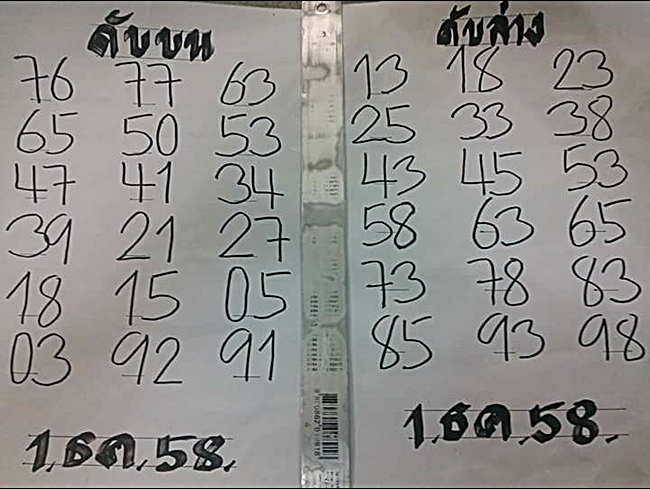 ดับบน
76 77 63
65 50 53
47 41 34
39 21 27
18 15 05
03 92 91
1.ธค.58.
ดับล่าง
13 18 23
25 33 38
43 45 53
58 63 65
73 78 83
85 93 98
1.ธค.58.